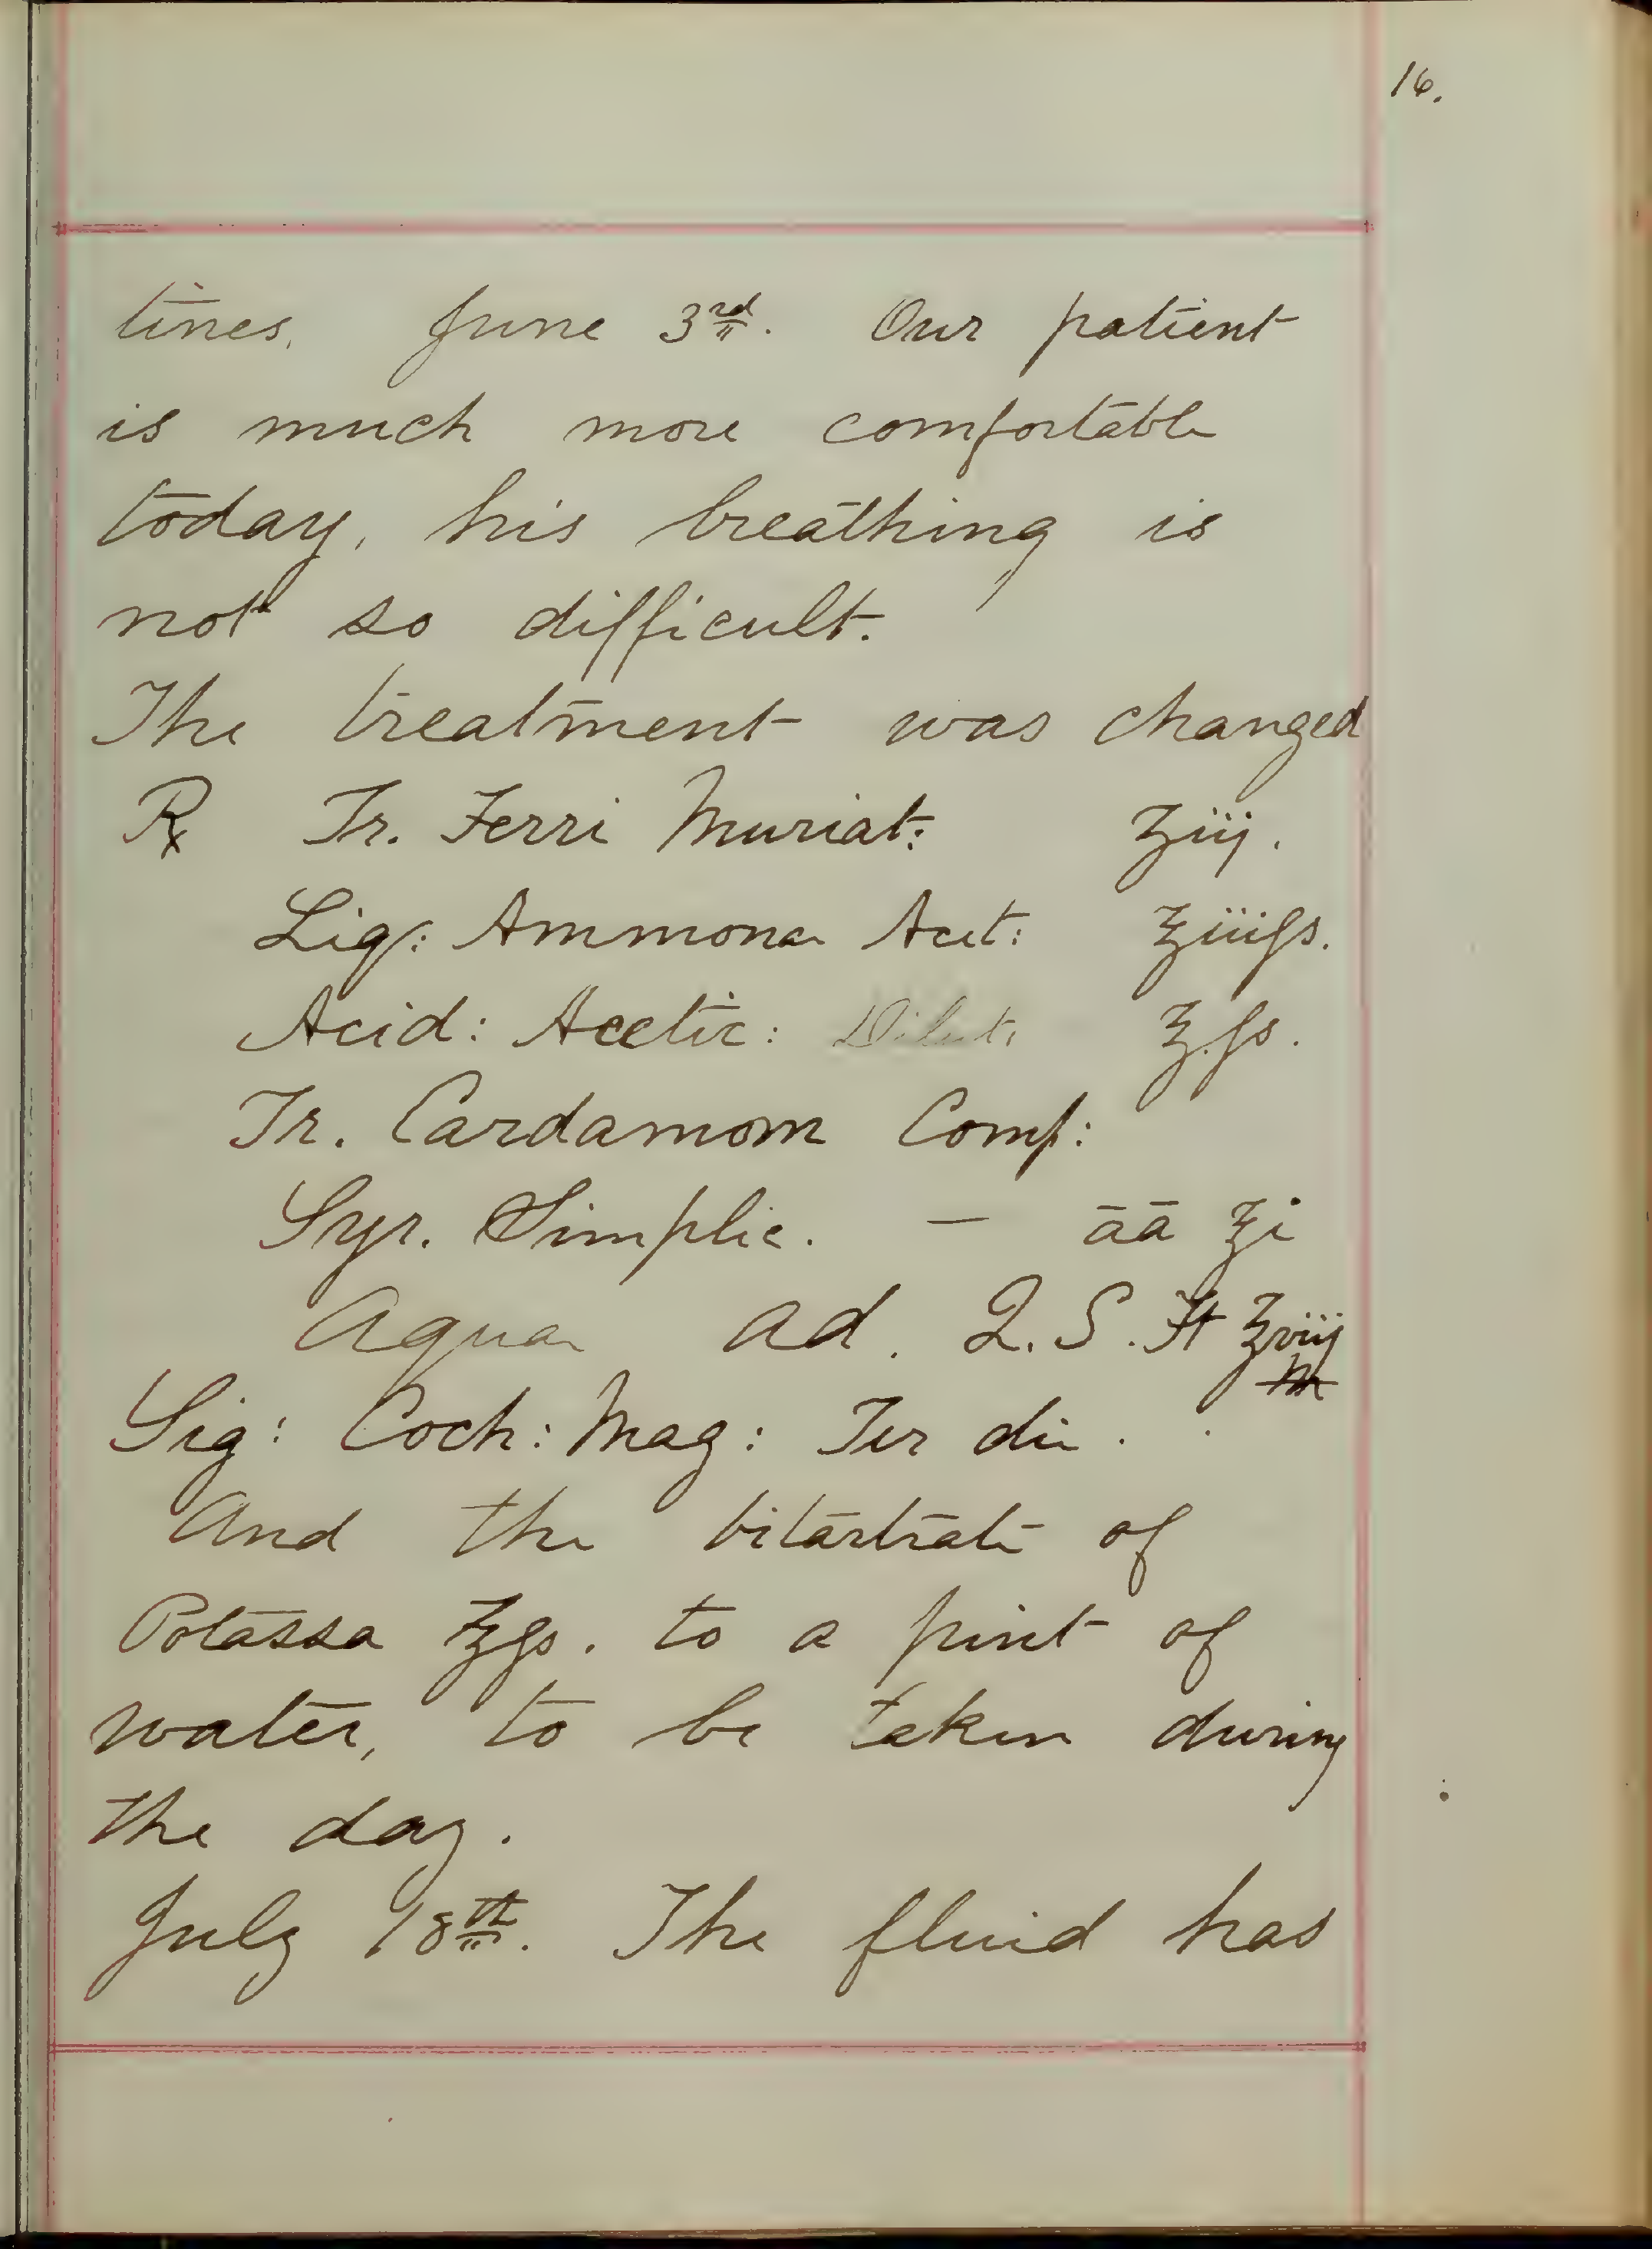 16.
tines. June 3rd. Our patient
is much more comfortable
today, his breathing is
not so difficult.
The treatment was changed
℞ Tr. Ferri Muriat: ʒiij.
Liq: Ammonia Acet: ℥iiiſs.
Acid: Acetic: Dilut. ℥.ſs.
Tr. Cardamom Comp:
Syr. Simplic. — āā ℥i
Aqua ad. Q.S. Ft ℥viij
M
Sig: Coch: Mag: Ter die.
And the bitartrate of
Potassa ℥ſs. to a pint of
water, to be taken during
the day.
July 18th. The fluid has